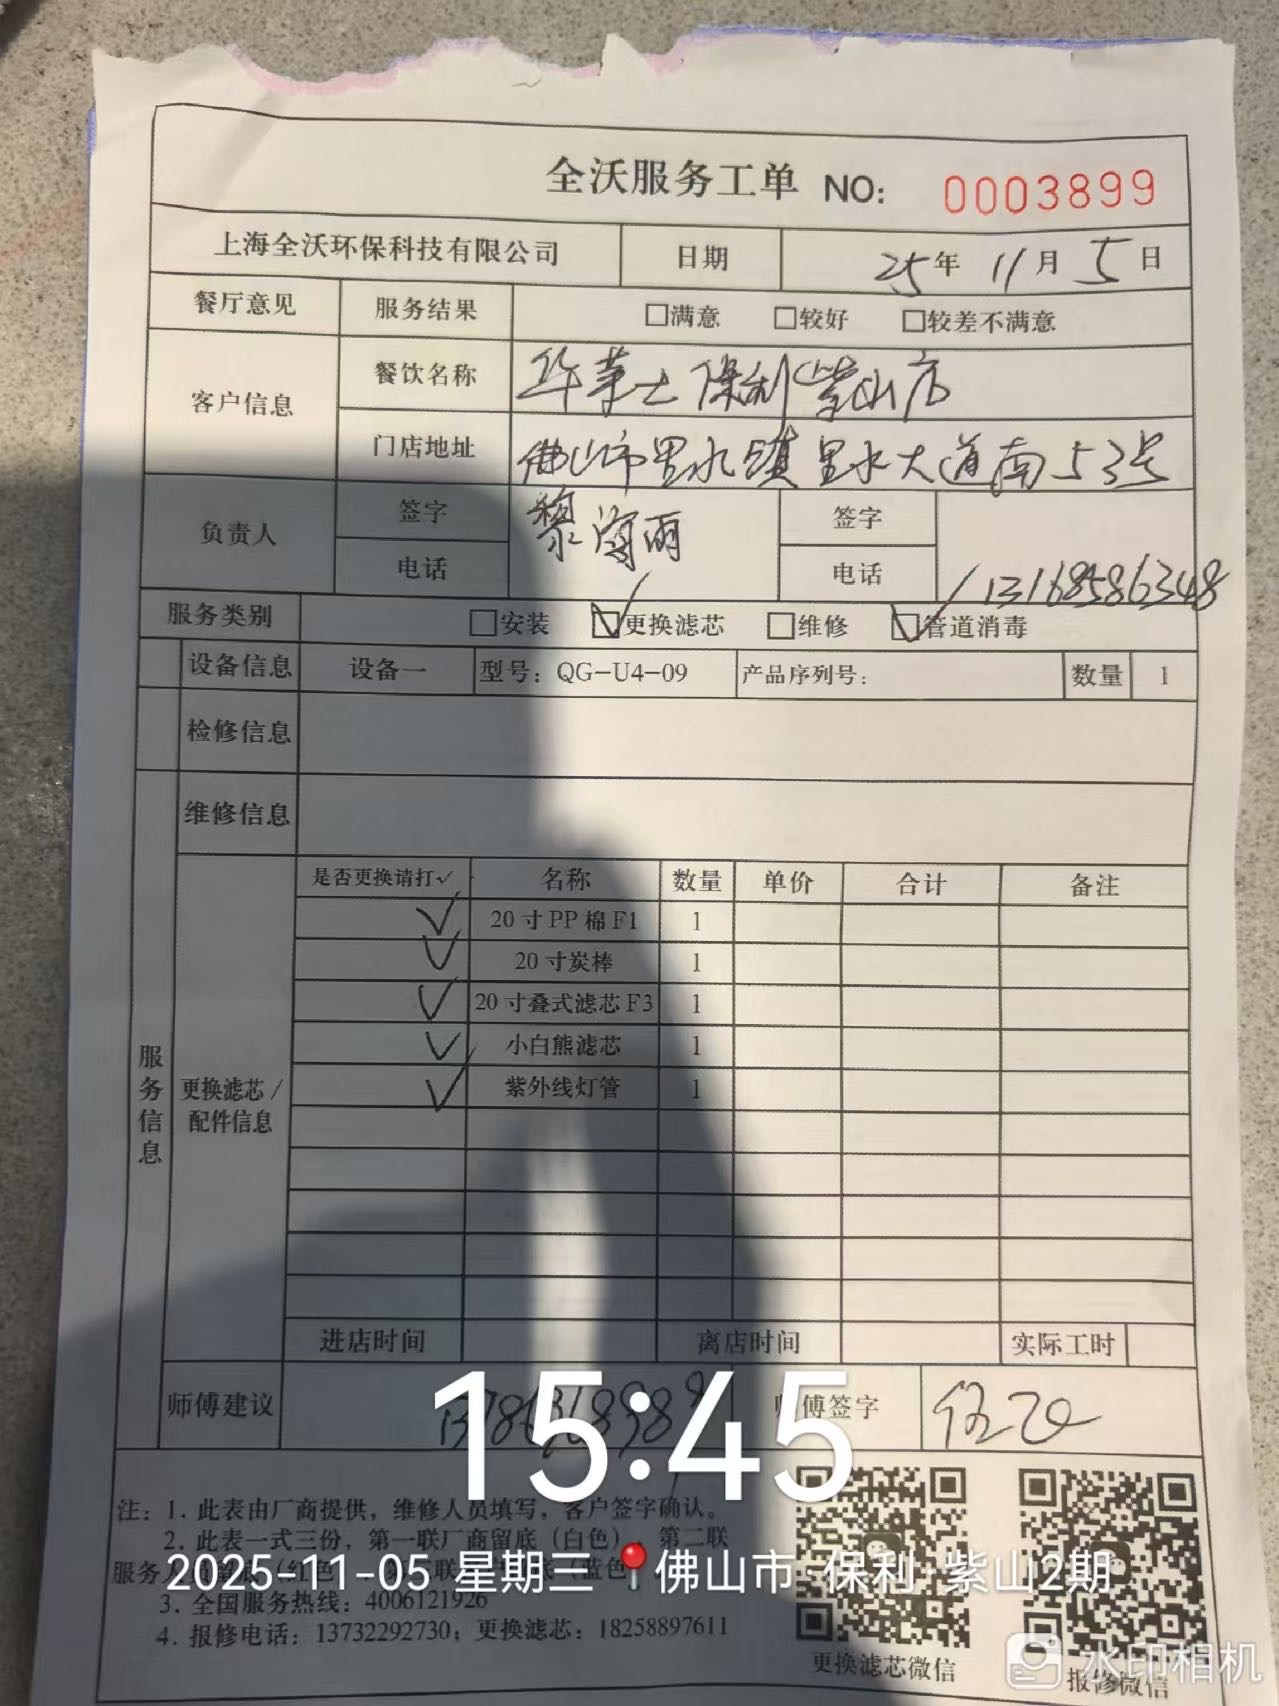 全沃服务工单 NO: 0003899
上海全沃环保科技有限公司 日期 25年 11月 5日
餐厅意见 服务结果 □满意 □较好 □较差不满意
客户信息 餐饮名称 华莱士保利紫山店
门店地址 佛山市里水镇里水大道南53号
负责人 签字 黎海雨 签字
电话 电话 13168586348
服务类别 □安装 ☑更换滤芯 □维修 ☑管道消毒
设备信息 设备一 型号：QG-U4-09 产品序列号： 数量 1
检修信息
维修信息
服务信息 更换滤芯/配件信息
是否更换请打✓ 名称 数量 单价 合计 备注
✓ 20寸PP棉F1 1
✓ 20寸炭棒 1
✓ 20寸叠式滤芯F3 1
✓ 小白熊滤芯 1
✓ 紫外线灯管 1
进店时间 离店时间 实际工时
师傅建议 师傅签字
15:45
注：1. 此表由厂商提供，维修人员填写，客户签字确认。
2. 此表一式三份，第一联厂商留底（白色），第二联
服务
2025-11-05 星期三 佛山市·保利·紫山2期
3. 全国服务热线：4006121926
4. 报修电话：13732292730；更换滤芯：18258897611
更换滤芯微信 报修微信
水印相机